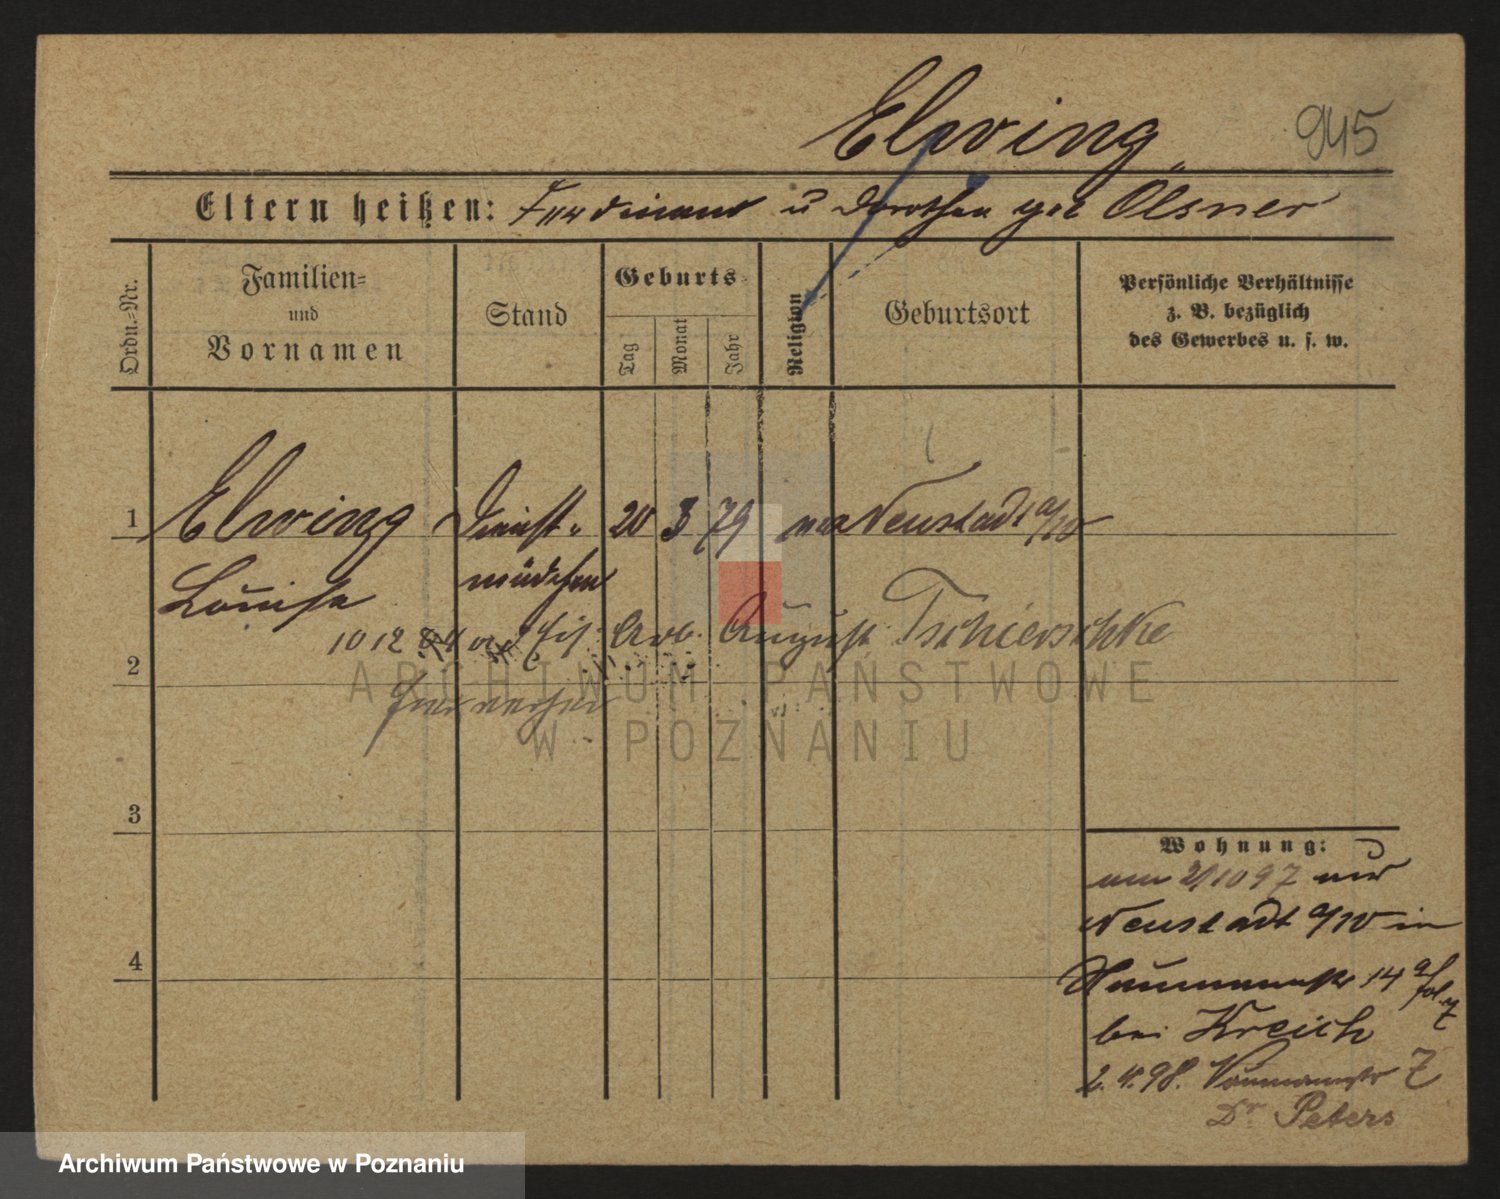 Elsving
945
Eltern heißen: Ferdinand u Dorothea geb Ölsner
Ordn.-Nr.
Familien-
und
Vornamen
Stand
Geburts-
Tag
Monat
Jahr
Religion
Geburtsort
Persönliche Verhältnisse
z. B. bezüglich
des Gewerbes u. s. w.
1
Elwing
Dienst-
20 3 79
Neustadt a/W
Louise
mädchen
10 12
Arb. August Tschierschke
2
ARCHIWUM PAŃSTWOWE
W POZNANIU
3
Wohnung:
am 2/10 97 aus
Neustadt a/W in
14
bei Kreich
2.4.98. Naumannstr 7
Dr Peters
4
Archiwum Państwowe w Poznaniu